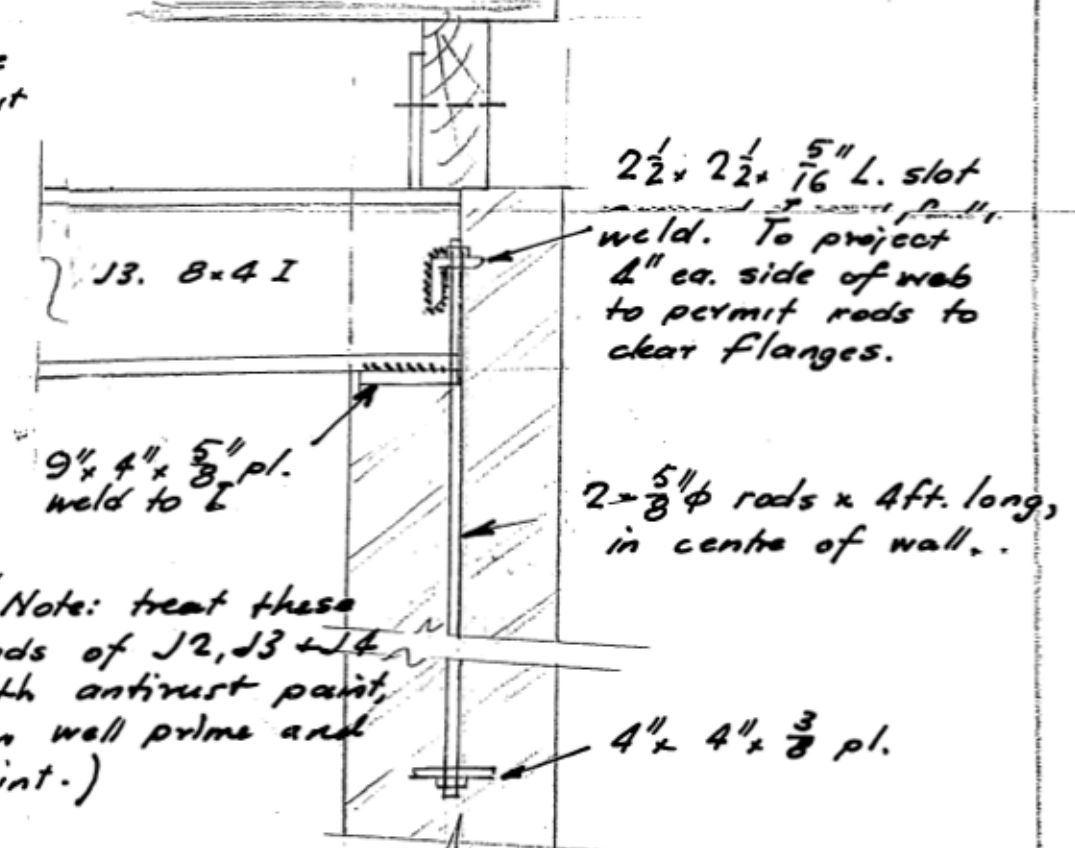 2½ x 2½ x 5/16" L. slot
weld. To project
4" ea. side of web
to permit rods to
clear flanges.
J3. 8x4 I
9" x 4" x 5/8" pl.
weld to I
2 - 5/8" φ rods x 4ft. long,
in centre of wall..
Note: treat these
of J2, J3 + J4
antirust paint,
well prime and
4" x 4" x 3/8 pl.